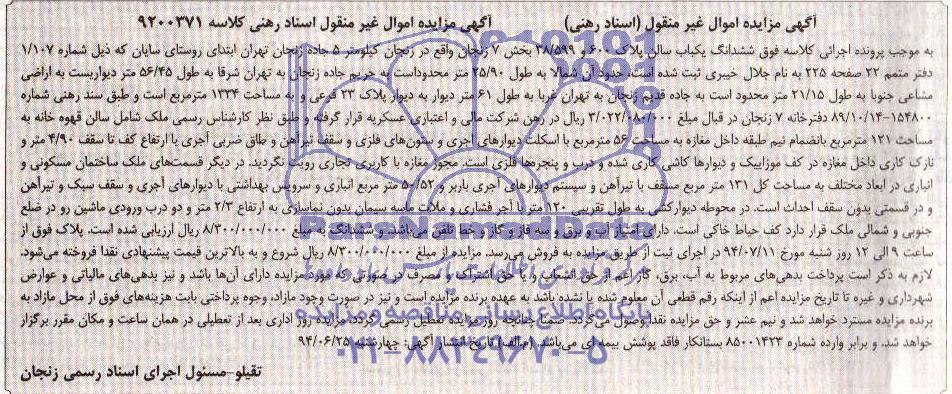 آگهی مزایده اموال غیر منقول (اسناد رهنی) آگهی مزایده اموال غیر منقول اسناد رهنی کلاسه ۹۲۰۰۳۷۱
به موجب پرونده اجرائی کلاسه فوق ششدانگ یکباب سالن پلاک ۶۰۰ و ۳۸/۵۹۹ بخش ۷ زنجان واقع در زنجان کیلومتر ۵ جاده زنجان تهران ابتدای روستای سایان که ذیل شماره ۱/۱۰۷
دفتر متمم ۲۲ صفحه ۲۲۵ به نام جلال خیبری ثبت شده است. حدود آن شمالا به طول ۲۵/۹۰ متر محدوداست به حریم جاده زنجان به تهران شرقا به طول ۵۶/۴۵ متر دیواریست به اراضی
مشاعی جنوبا به طول ۲۱/۱۵ متر محدود است به جاده قدیم زنجان به تهران غربا به طول ۶۱ متر دیوار به دیوار پلاک ۲۳ فرعی و به مساحت ۱۳۳۴ مترمربع است و طبق سند رهنی شماره
۱۵۴۸۰۰-۸۹/۱۰/۱۴ دفترخانه ۷ زنجان در قبال مبلغ ۳/۰۲۲/۰۸۰/۰۰۰ ریال در رهن شرکت مالی و اعتباری عسکریه قرار گرفته و طبق نظر کارشناس رسمی ملک شامل سالن قهوه خانه به
مساحت ۱۲۱ مترمربع بانضمام نیم طبقه داخل مغازه به مساحت ۵۶ مترمربع با اسکلت دیوارهای آجری و ستون‌های فلزی و سقف تیرآهن و طاق ضربی آجری با ارتفاع کف تا سقف ۴/۹۰ متر و
نازک کاری داخل مغازه در کف موزاییک و دیوارها کاشی کاری شده و درب و پنجره‌ها فلزی است. مجوز مغازه با کاربری تجاری رویت نگردید. در دیگر قسمت‌های ملک ساختمان مسکونی و
انباری در ابعاد مختلف به مساحت کل ۱۳۱ متر مربع مسقف با تیرآهن و سیستم دیوارهای آجری باربر و ۵۰/۵۲ متر مربع انباری و سرویس بهداشتی با دیوارهای آجری و سقف سبک و تیرآهن
و در قسمتی بدون سقف احداث است. در محوطه دیوارکشی به طول تقریبی ۱۲۰ متر با آجر فشاری و ملات ماسه سیمان بدون نماسازی به ارتفاع ۲/۳ متر و دو درب ورودی ماشین رو در ضلع
جنوبی و شمالی ملک قرار دارد کف حیاط خاکی است. دارای امتیاز آب و برق و سه فاز و گاز و خط تلفن می‌باشد و ششدانگ به مبلغ ۸/۳۰۰/۰۰۰/۰۰۰ ریال ارزیابی شده است. پلاک فوق از
ساعت ۹ الی ۱۲ روز شنبه مورخ ۹۴/۰۷/۱۱ در اجرای ثبت از طریق مزایده به فروش می‌رسد. مزایده از مبلغ ۸/۳۰۰/۰۰۰/۰۰۰ ریال شروع و به بالاترین قیمت پیشنهادی نقدا فروخته می‌شود.
لازم به ذکر است پرداخت بدهی‌های مربوط به آب، برق، گاز اعم از حق انشعاب و یا حق اشتراک و مصرف در صورتی که مورد مزایده دارای آن‌ها باشد و نیز بدهی‌های مالیاتی و عوارض
شهرداری و غیره تا تاریخ مزایده اعم از اینکه رقم قطعی آن معلوم شده یا نشده باشد به عهده برنده مزایده است و نیز در صورت وجود مازاد، وجوه پرداختی بابت هزینه‌های فوق از محل مازاد به
برنده مزایده مسترد خواهد شد و نیم عشر و حق مزایده نقدا وصول می‌گردد. ضمنا چنانچه روز مزایده تعطیل رسمی گردد، مزایده روز اداری بعد از تعطیلی در همان ساعت و مکان مقرر برگزار
خواهد شد. و برابر وارده شماره ۸۵۰۰۱۴۲۳ بستانکار فاقد پوشش بیمه ای می‌باشد. (م‌الف) تاریخ انتشار آگهی: چهارشنبه ۹۴/۰۶/۲۵
تقیلو-مسئول اجرای اسناد رسمی زنجان
ParsNamadData
پایگاه اطلاع رسانی مناقصه و مزایده
۰۲۱-۸۸۳۴۹۶۷۰-۵